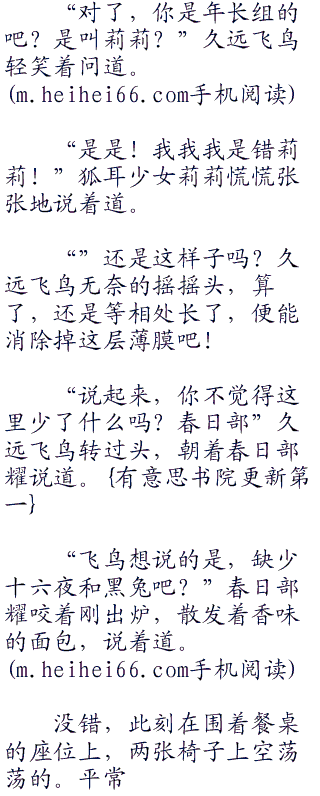 “对了，你是年长组的
吧？是叫莉莉？”久远飞鸟
轻笑着问道。
(m.heihei66.com手机阅读)
“是是！我我我是错莉
莉！”狐耳少女莉莉慌慌张
张地说着道。
“”还是这样子吗？久
远飞鸟无奈的摇摇头，算
了，还是等相处长了，便能
消除掉这层薄膜吧！
“说起来，你不觉得这
里少了什么吗？春日部”久
远飞鸟转过头，朝着春日部
耀说道。{有意思书院更新第
一}
“飞鸟想说的是，缺少
十六夜和黑兔吧？”春日部
耀咬着刚出炉，散发着香味
的面包，说着道。
(m.heihei66.com手机阅读)
没错，此刻在围着餐桌
的座位上，两张椅子上空荡
荡的。平常